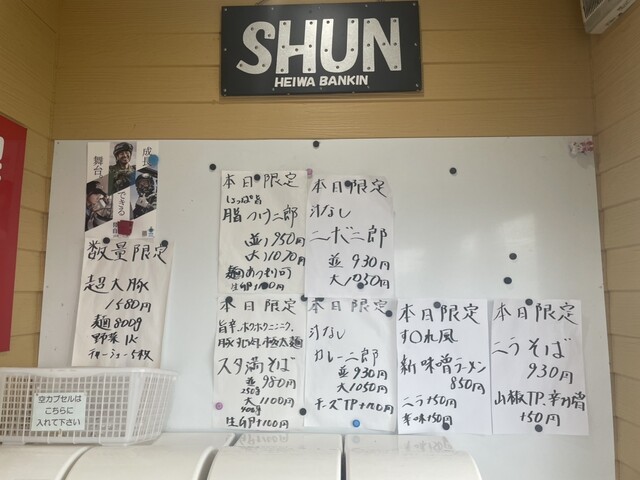 SHUN
HEIWA BANKIN
成長
できる
舞台
数量限定
超大豚
1580円
麺800g
野菜1K
チャーシュー5枚
本日限定
脂つけ二郎
並 950円
大 1070円
麺あつもり可
生卵+100円
本日限定
汁なし
ニボ二郎
並 930円
大 1050円
本日限定
旨辛、ホクホクニンニク、
スタ満そば
並 980円
250g
大 1100円
400g
生卵+100円
本日限定
汁なし
カレー二郎
並 930円
大 1050円
チーズTP+100円
本日限定
す0れ風
新味噌ラーメン
850円
ニラ+50円
辛味+50円
本日限定
ニラそば
930円
山椒TP.辛増
+50円
空カプセルは
こちらに
入れて下さい